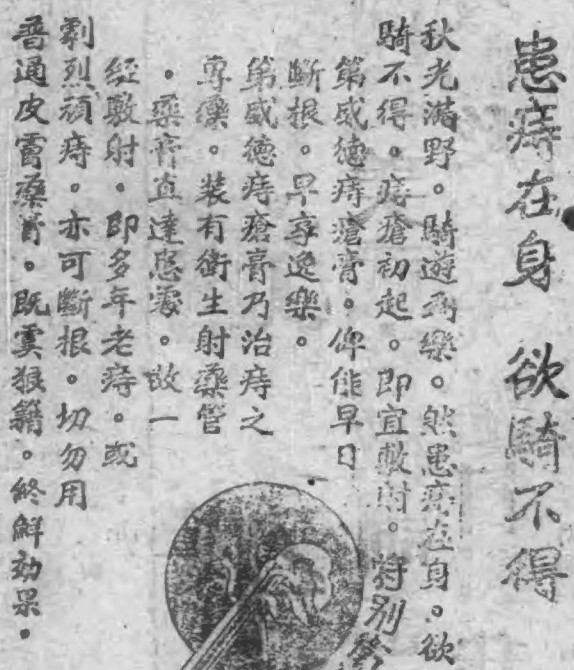 患痔在身 欲騎不得
秋光滿野。騎遊為樂。然患痔在身。欲
騎不得。痔瘡初起。即宜敷射。特別
第威德痔瘡膏。俾能早日
斷根。早享逸樂。
第威德痔瘡膏乃治痔之
專藥。裝有衛生射藥管
。藥膏直達患處。故一
經敷射。即多年老痔。或
劇烈頑痔。亦可斷根。切勿用
普通皮膏藥膏。既虞狼藉。終鮮効果。